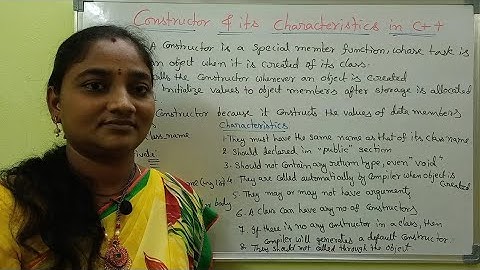 Constructor & its Characteristics in C++
A Constructor is a special member function, whose task is
an object when it is created of its class.
calls the Constructor whenever an object is created
initialize values to object members after storage is allocated
Constructor because it constructs the values of data members
class name
private:
or body
Characteristics
1. They must have the same name as that of its class name
2. Should declared in "public" section
3. Should not contain any return type, even "void"
4. They are called automatically by compiler when object is created
5. They may or may not have arguments
6. A class can have any no of constructors
7. If there is no any constructor in a class, then
compiler will generates a default constructor.
8. They should not called through the object